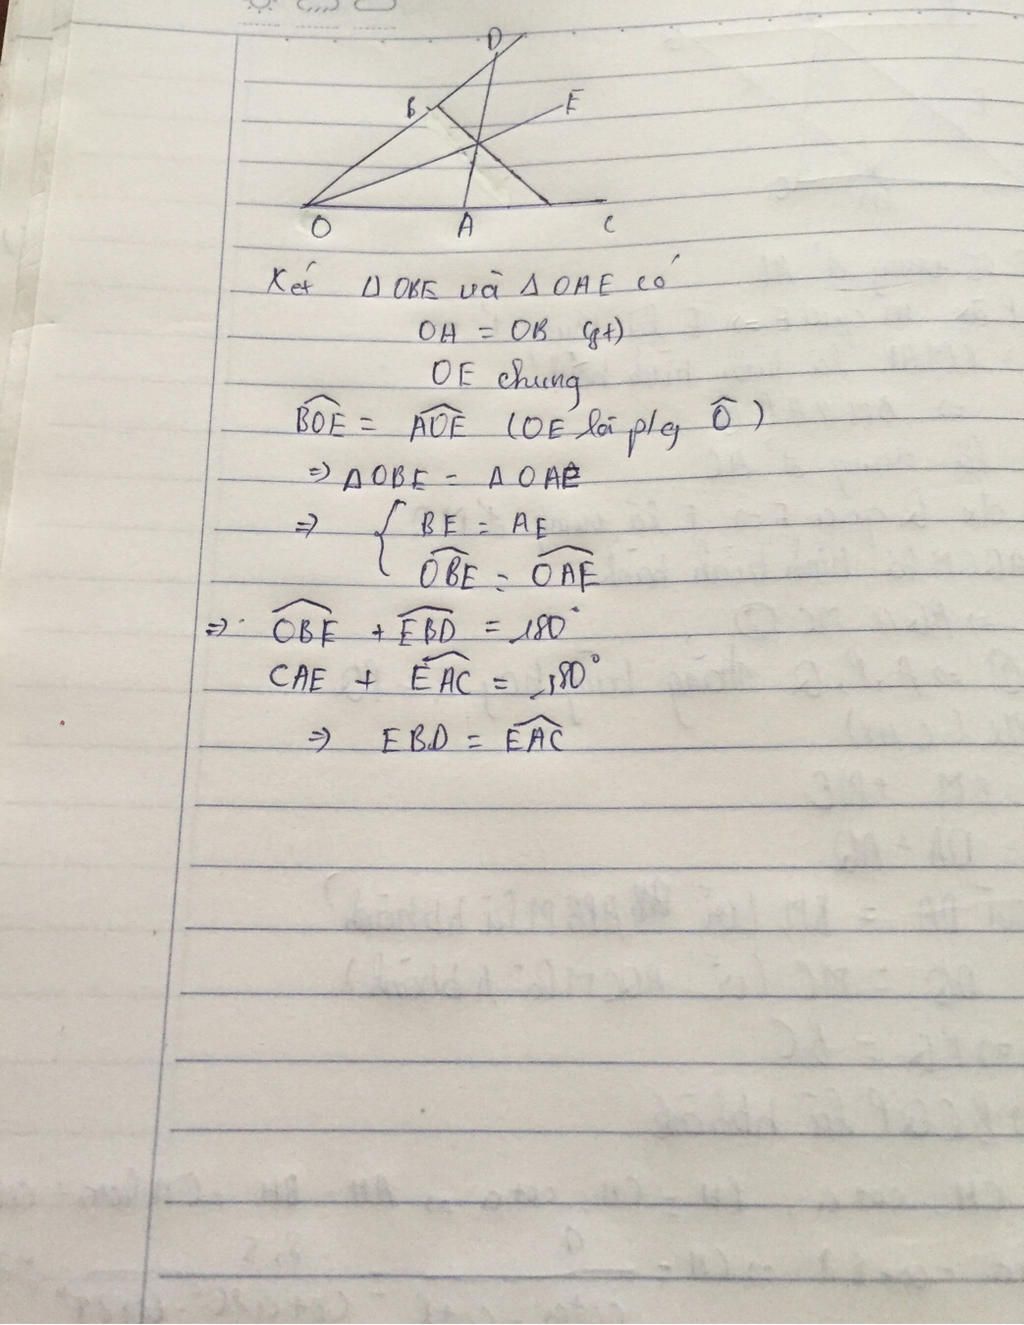 D
B
E
O
A
C
Xét Δ OBE và Δ OAE có
OA = OB (gt)
OE chung
BOE^ = AOE^ (OE là p/g Ô)
=> Δ OBE = Δ OAE
=> { BE = AE
OBE^ = OAE^
=> OBE^ + EBD^ = 180°
CAE + EAC^ = 180°
=> EBD = EAC^